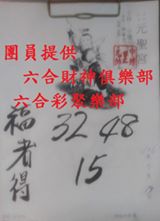 元聖宮
團員提供
六合財神俱樂部
六合彩眾樂部
福者得
32 48
15